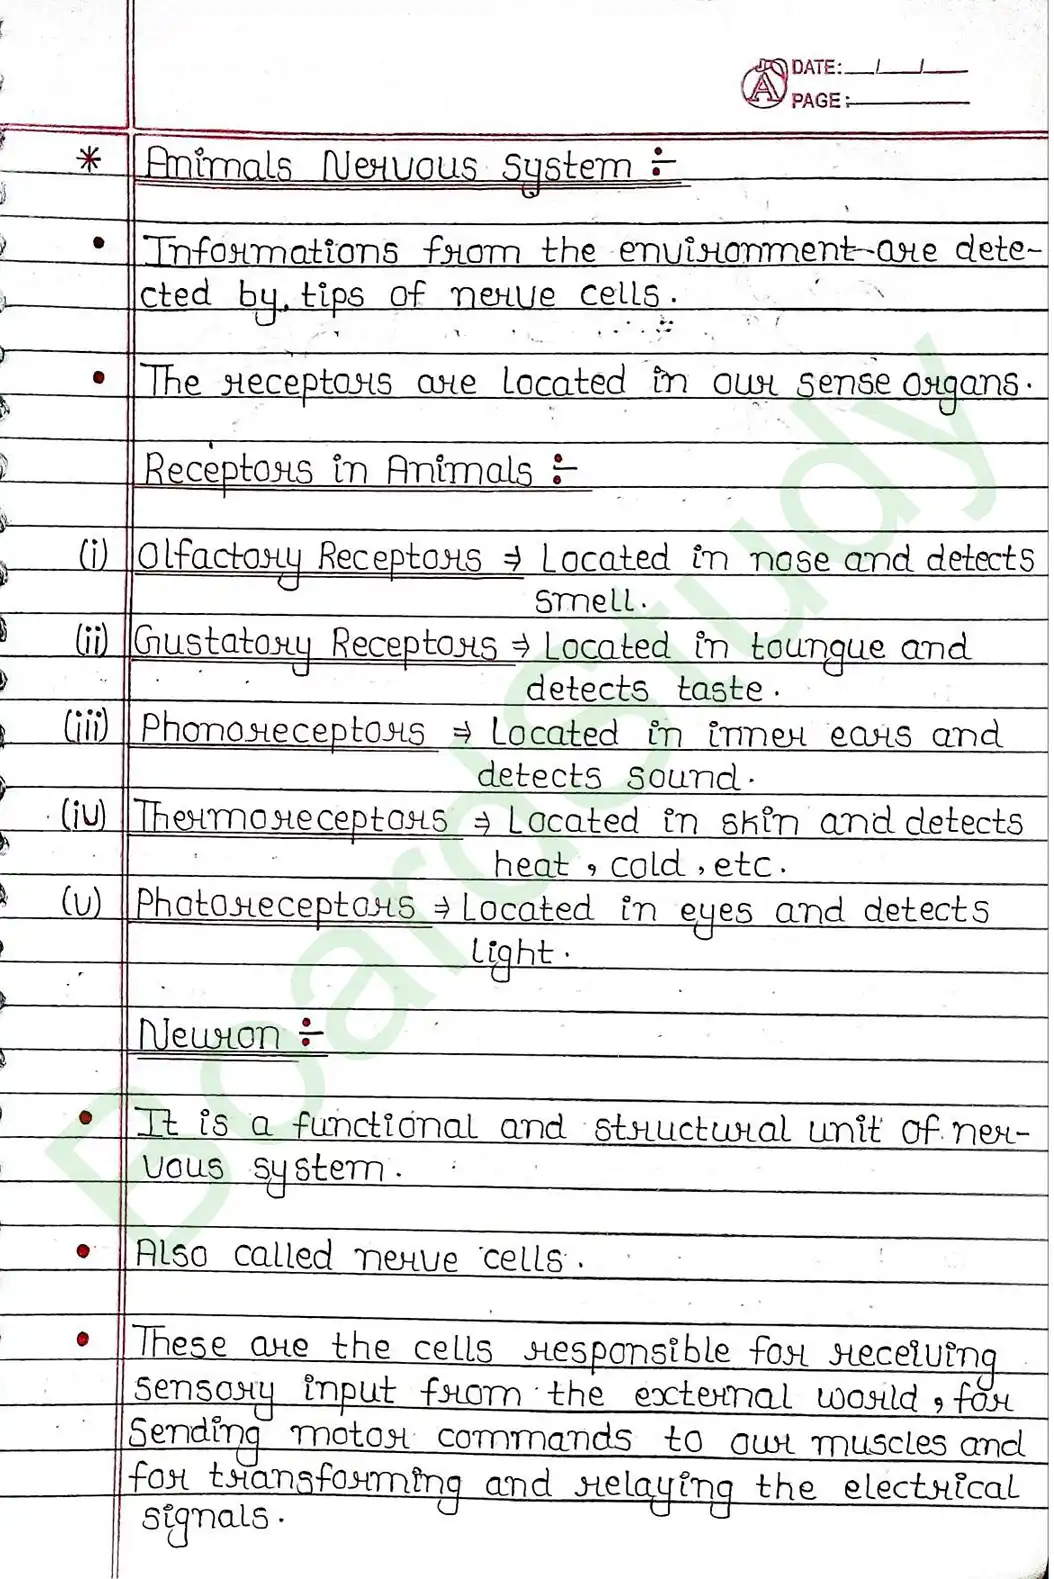 DATE: __/__/__
PAGE:
* Animals Nervous System :-
• Informations from the environment are dete-
cted by, tips of nerve cells.
• The receptors are located in our sense organs.
Receptors in Animals :-
(i) Olfactory Receptors ⇒ Located in nose and detects
smell.
(ii) Gustatory Receptors ⇒ Located in toungue and
detects taste.
(iii) Phonoreceptors ⇒ Located in inner ears and
detects sound.
(iv) Thermoreceptors ⇒ Located in skin and detects
heat, cold, etc.
(v) Photoreceptors ⇒ Located in eyes and detects
light.
Neuron :-
• It is a functional and structural unit of ner-
vous system.
• Also called nerve cells.
• These are the cells responsible for receiving
sensory input from the external world, for
sending motor commands to our muscles and
for transforming and relaying the electrical
signals.
BoardStudy